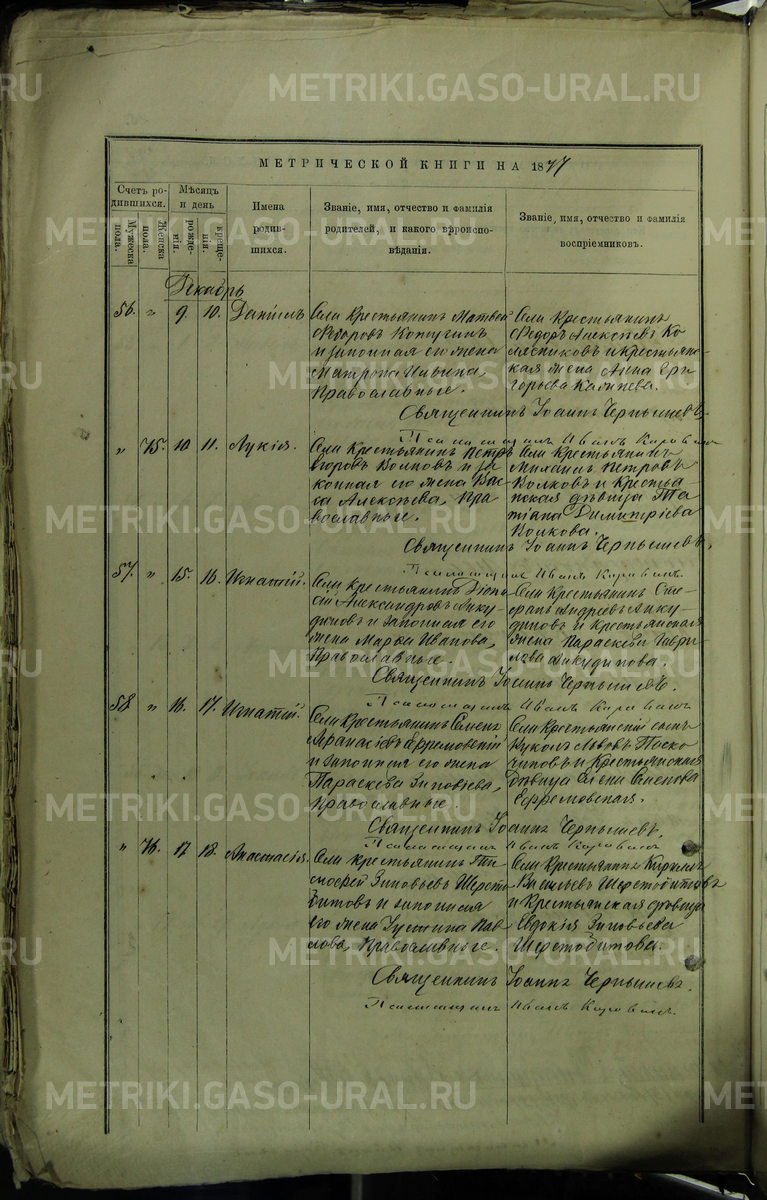 МЕТРИЧЕСКОЙ КНИГИ НА 1877
Счетъ ро-
дившихся.
Мужеска
пола.
Женска
пола.
Мѣсяцъ
и день
рожде-
нія.
креще-
нія.
Имена
родив-
шихся.
Званіе, имя, отчество и фамилія
родителей, и какого вѣроиспо-
вѣданія.
Званіе, имя, отчество и фамилія
воспріемниковъ.
Декабрь
56. " 9. 10. Даніилъ
Села Крестьянинъ Матвей
Ѳедоровъ
и законная его жена
Матрона
Православные.
Села Крестьянинъ
Ѳедоръ Алексѣевъ Ко-
лясниковъ и крестьян-
ская жена Анна Гри-
горьева
Священникъ Іоаннъ Чернышевъ.
Псаломщикъ Иванъ
" 75. 10 11. Лукія.
Села Крестьянинъ Петръ
Егоровъ Волковъ и за-
конная его жена Вас-
са Алексѣева, Пра-
вославные.
Села Крестьянинъ
Михаилъ Петровъ
Волковъ и Крестья-
нская дѣвица Та-
тіана Димитріева
Волкова.
Священникъ Іоаннъ Чернышевъ.
Псаломщикъ Иванъ
57. " 15. 16. Игнатій.
Села Крестьянинъ
Александровъ Аки-
диновъ и законная его
жена Марѳа Иванова,
Православные.
Села Крестьянинъ Сте-
фанъ Андреевъ Аки-
диновъ и Крестьянская
жена Параскева Гаври-
лова Акидинова.
Священникъ Іоаннъ Чернышевъ.
Псаломщикъ Иванъ
58 " 16. 17. Игнатій.
Села Крестьянинъ Семенъ
Афанасіевъ Ефремовскій
и законная его жена
Параскева Зиновіева,
православные.
Села Крестьянскій сынъ
Вуколъ Львовъ
и Крестьянская
Дѣвица Елена Семенова
Ефремовская.
Священникъ Іоаннъ Чернышевъ.
Псаломщикъ Иванъ
" 76. 17 18. Анастасія.
Села крестьянинъ Ти-
моѳей Зиновьевъ Шерсто-
битовъ и законная
его жена Устина Пав-
лова, Православные.
Села Крестьянинъ Кириллъ
Васильевъ Шерстобитовъ
и Крестьянская дѣвица
Евдокія Зиновьева
Шерстобитова.
Священникъ Іоаннъ Чернышевъ.
Псаломщикъ Иванъ
METRIKI.GASO-URAL.RU